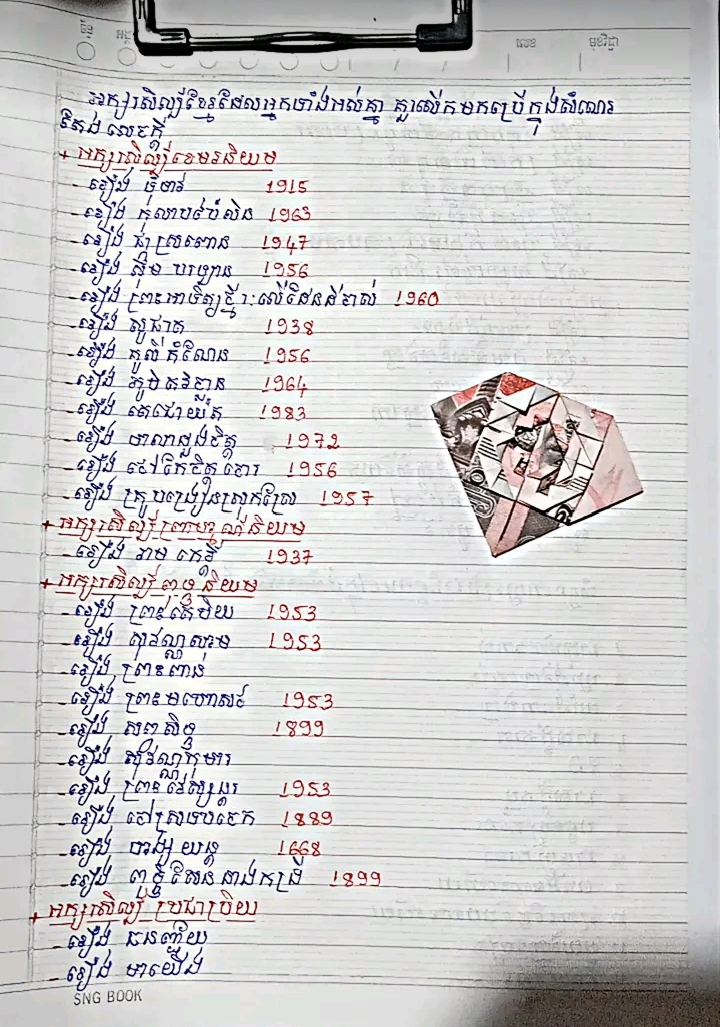 លេខ មុខវិជ្ជា
អក្សរសិល្ប៍ខ្មែរដែលអ្នកទាំងអស់គ្នា គួរលើកមកប្រើក្នុងសំណេរ
តែងសេចក្តី
+ អក្សរសិល្ប៍ខេមរនិយម
- រឿង ទុំទាវ 1915
- រឿង កុលាបប៉ៃលិន 1963
- រឿង ផ្កាស្រពោន 1947
- រឿង ស៊ឹម បរឡាន 1956
- រឿង ព្រះអាទិត្យថ្មីរះលើដែនដីចាស់ 1960
- រឿង សូផាត 1938
- រឿង កូលីកំណែន 1956
- រឿង ភូមិតិរច្ឆាន 1964
- រឿង តេជោយ៉ត 1983
- រឿង មាលាដួងចិត្ត 1972
- រឿង ចៅកែចិត្តចោរ 1956
- រឿង គ្រូបង្រៀនស្រុកស្រែ 1957
+ អក្សរសិល្ប៍ព្រាហ្មណ៍និយម
- រឿង រាមកេរ្តិ៍ 1937
+ អក្សរសិល្ប៍ពុទ្ធនិយម
- រឿង ព្រះតេមិយ 1953
- រឿង សុវណ្ណសាម 1953
- រឿង ព្រះពាន់
- រឿង ព្រះមហោសថ 1953
- រឿង សព្វសិទ្ធិ 1899
- រឿង សុវណ្ណកុមារ
- រឿង ព្រះវេស្សន្តរ 1953
- រឿង ចៅស្រទបចេក 1889
- រឿង ហង្សយន្ត 1668
- រឿង ពុទ្ធិសែននាងកង្រី 1899
+ អក្សរសិល្ប៍ ប្រជាប្រិយ
- រឿង ធនញ្ជ័យ
- រឿង មាយើង
SNG BOOK